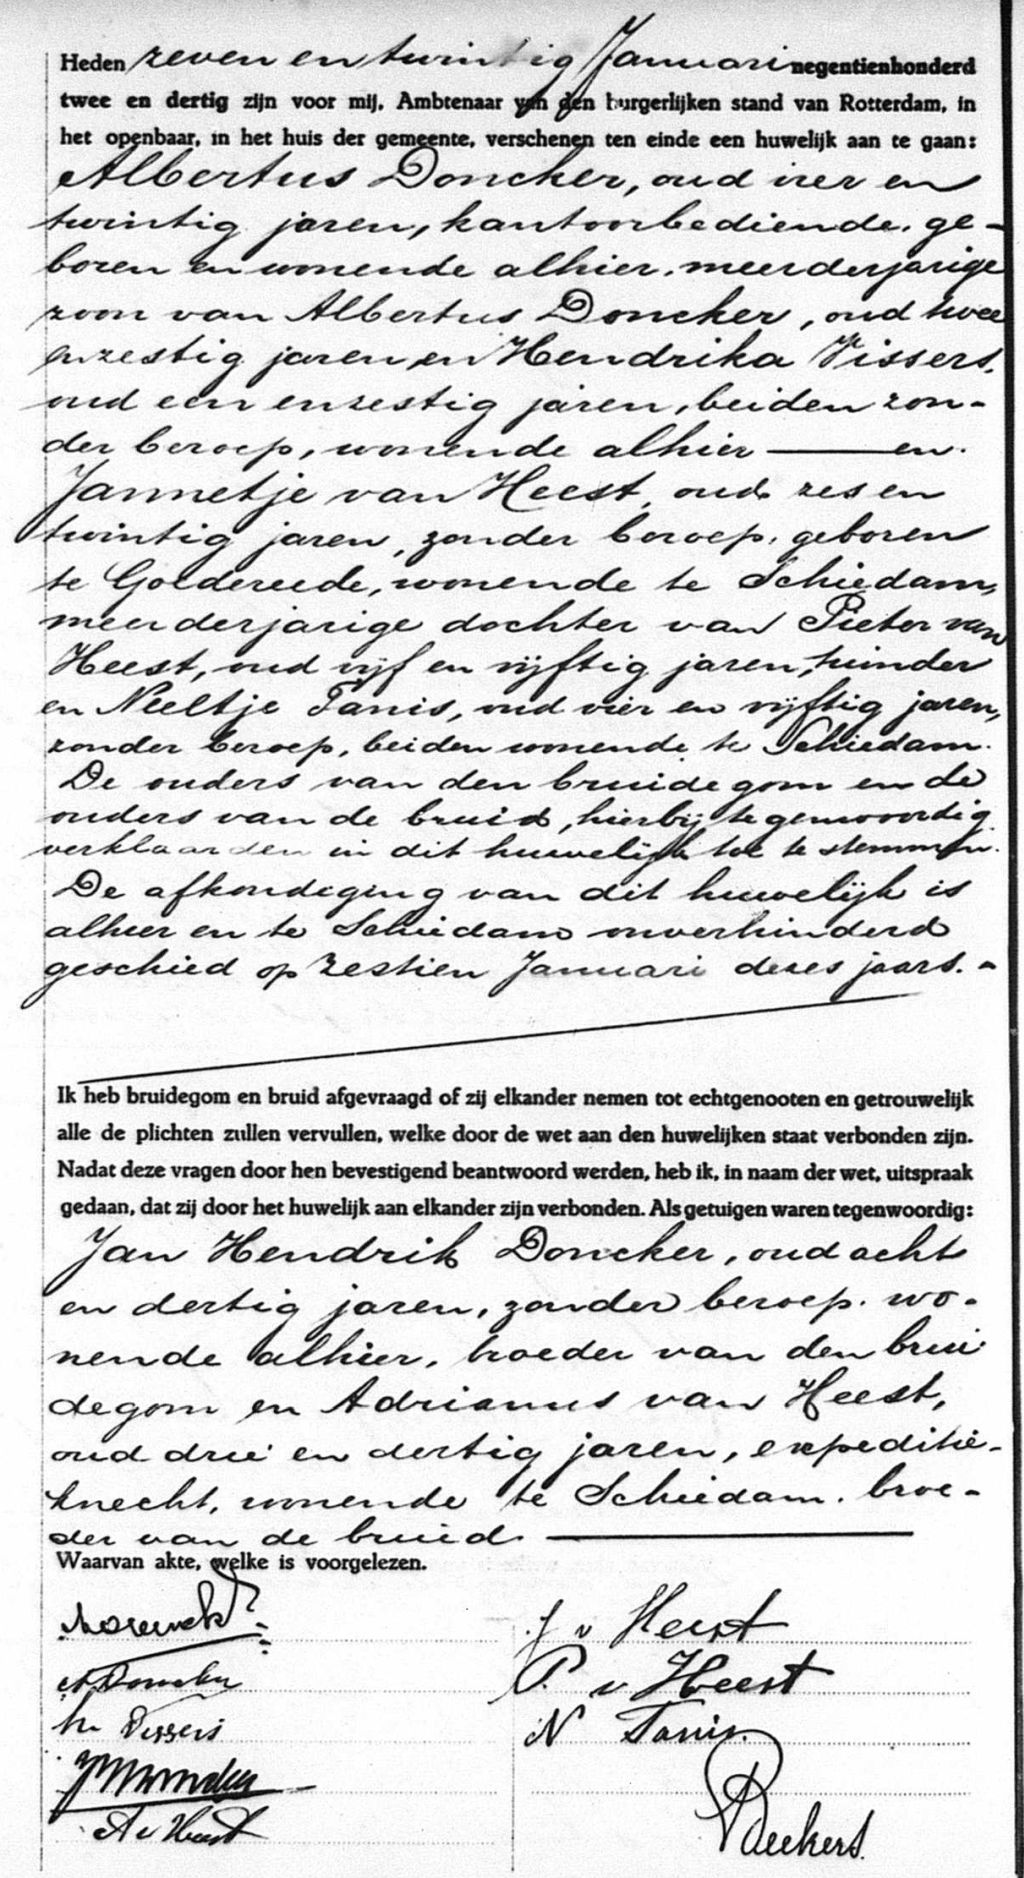 Heden zeven en twintig Januari negentienhonderd
twee en dertig zijn voor mij, Ambtenaar van den burgerlijken stand van Rotterdam, in
het openbaar, in het huis der gemeente, verschenen ten einde een huwelijk aan te gaan:
Albertus Doncker, oud vier en
twintig jaren, kantoorbediende, ge-
boren en wonende alhier, meerderjarige
zoon van Albertus Doncker, oud twee
en zestig jaren, en Hendrika Vissers,
oud een en zestig jaren, beiden zon-
der beroep, wonende alhier — en
Jannetje van Heest, oud zes en
twintig jaren, zonder beroep, geboren
te Goedereede, wonende te Schiedam,
meerderjarige dochter van Pieter van
Heest, oud vijf en vijftig jaren, tuinder
en Neeltje Tanis, oud vier en vijftig jaren,
zonder beroep, beiden wonende te Schiedam.
De ouders van den bruidegom en de
ouders van de bruid, hierbij tegenwoordig
verklaarden in dit huwelijk toe te stemmen.
De afkondiging van dit huwelijk is
alhier en te Schiedam onverhinderd
geschied op zestien Januari dezes jaars. -
Ik heb bruidegom en bruid afgevraagd of zij elkander nemen tot echtgenooten en getrouwelijk
alle de plichten zullen vervullen, welke door de wet aan den huwelijken staat verbonden zijn.
Nadat deze vragen door hen bevestigend beantwoord werden, heb ik, in naam der wet, uitspraak
gedaan, dat zij door het huwelijk aan elkander zijn verbonden. Als getuigen waren tegenwoordig:
Jan Hendrik Doncker, oud acht
en dertig jaren, zonder beroep, wo-
nende alhier, broeder van den brui-
degom en Adrianus van Heest,
oud drie en dertig jaren, expeditie-
knecht, wonende te Schiedam, broe-
der van de bruid.
Waarvan akte, welke is voorgelezen.
J v Heest
A Doncker
P. v Heest
Vissers
N Tanis.
A v Heest